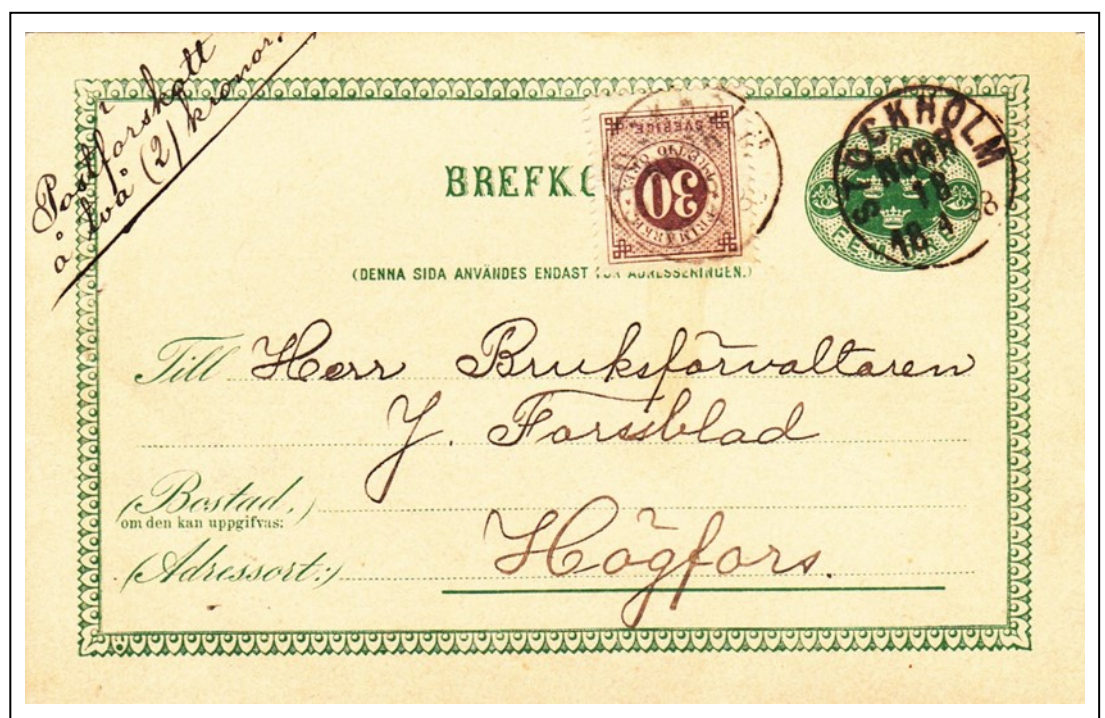 i
Postförskott
å två (2) kronor.
BREFKO
SVERIGE
TRETTIO ÖRE
30
FRIMÄRKE
STOCKHOLM
NORR
18
FEM ÖRE
(DENNA SIDA ANVÄNDES ENDAST FÖR ADRESSERINGEN.)
Till Herr Bruksförvaltaren
J. Forssblad
(Bostad,)
om den kan uppgifvas:
(Adressort:) Högfors.